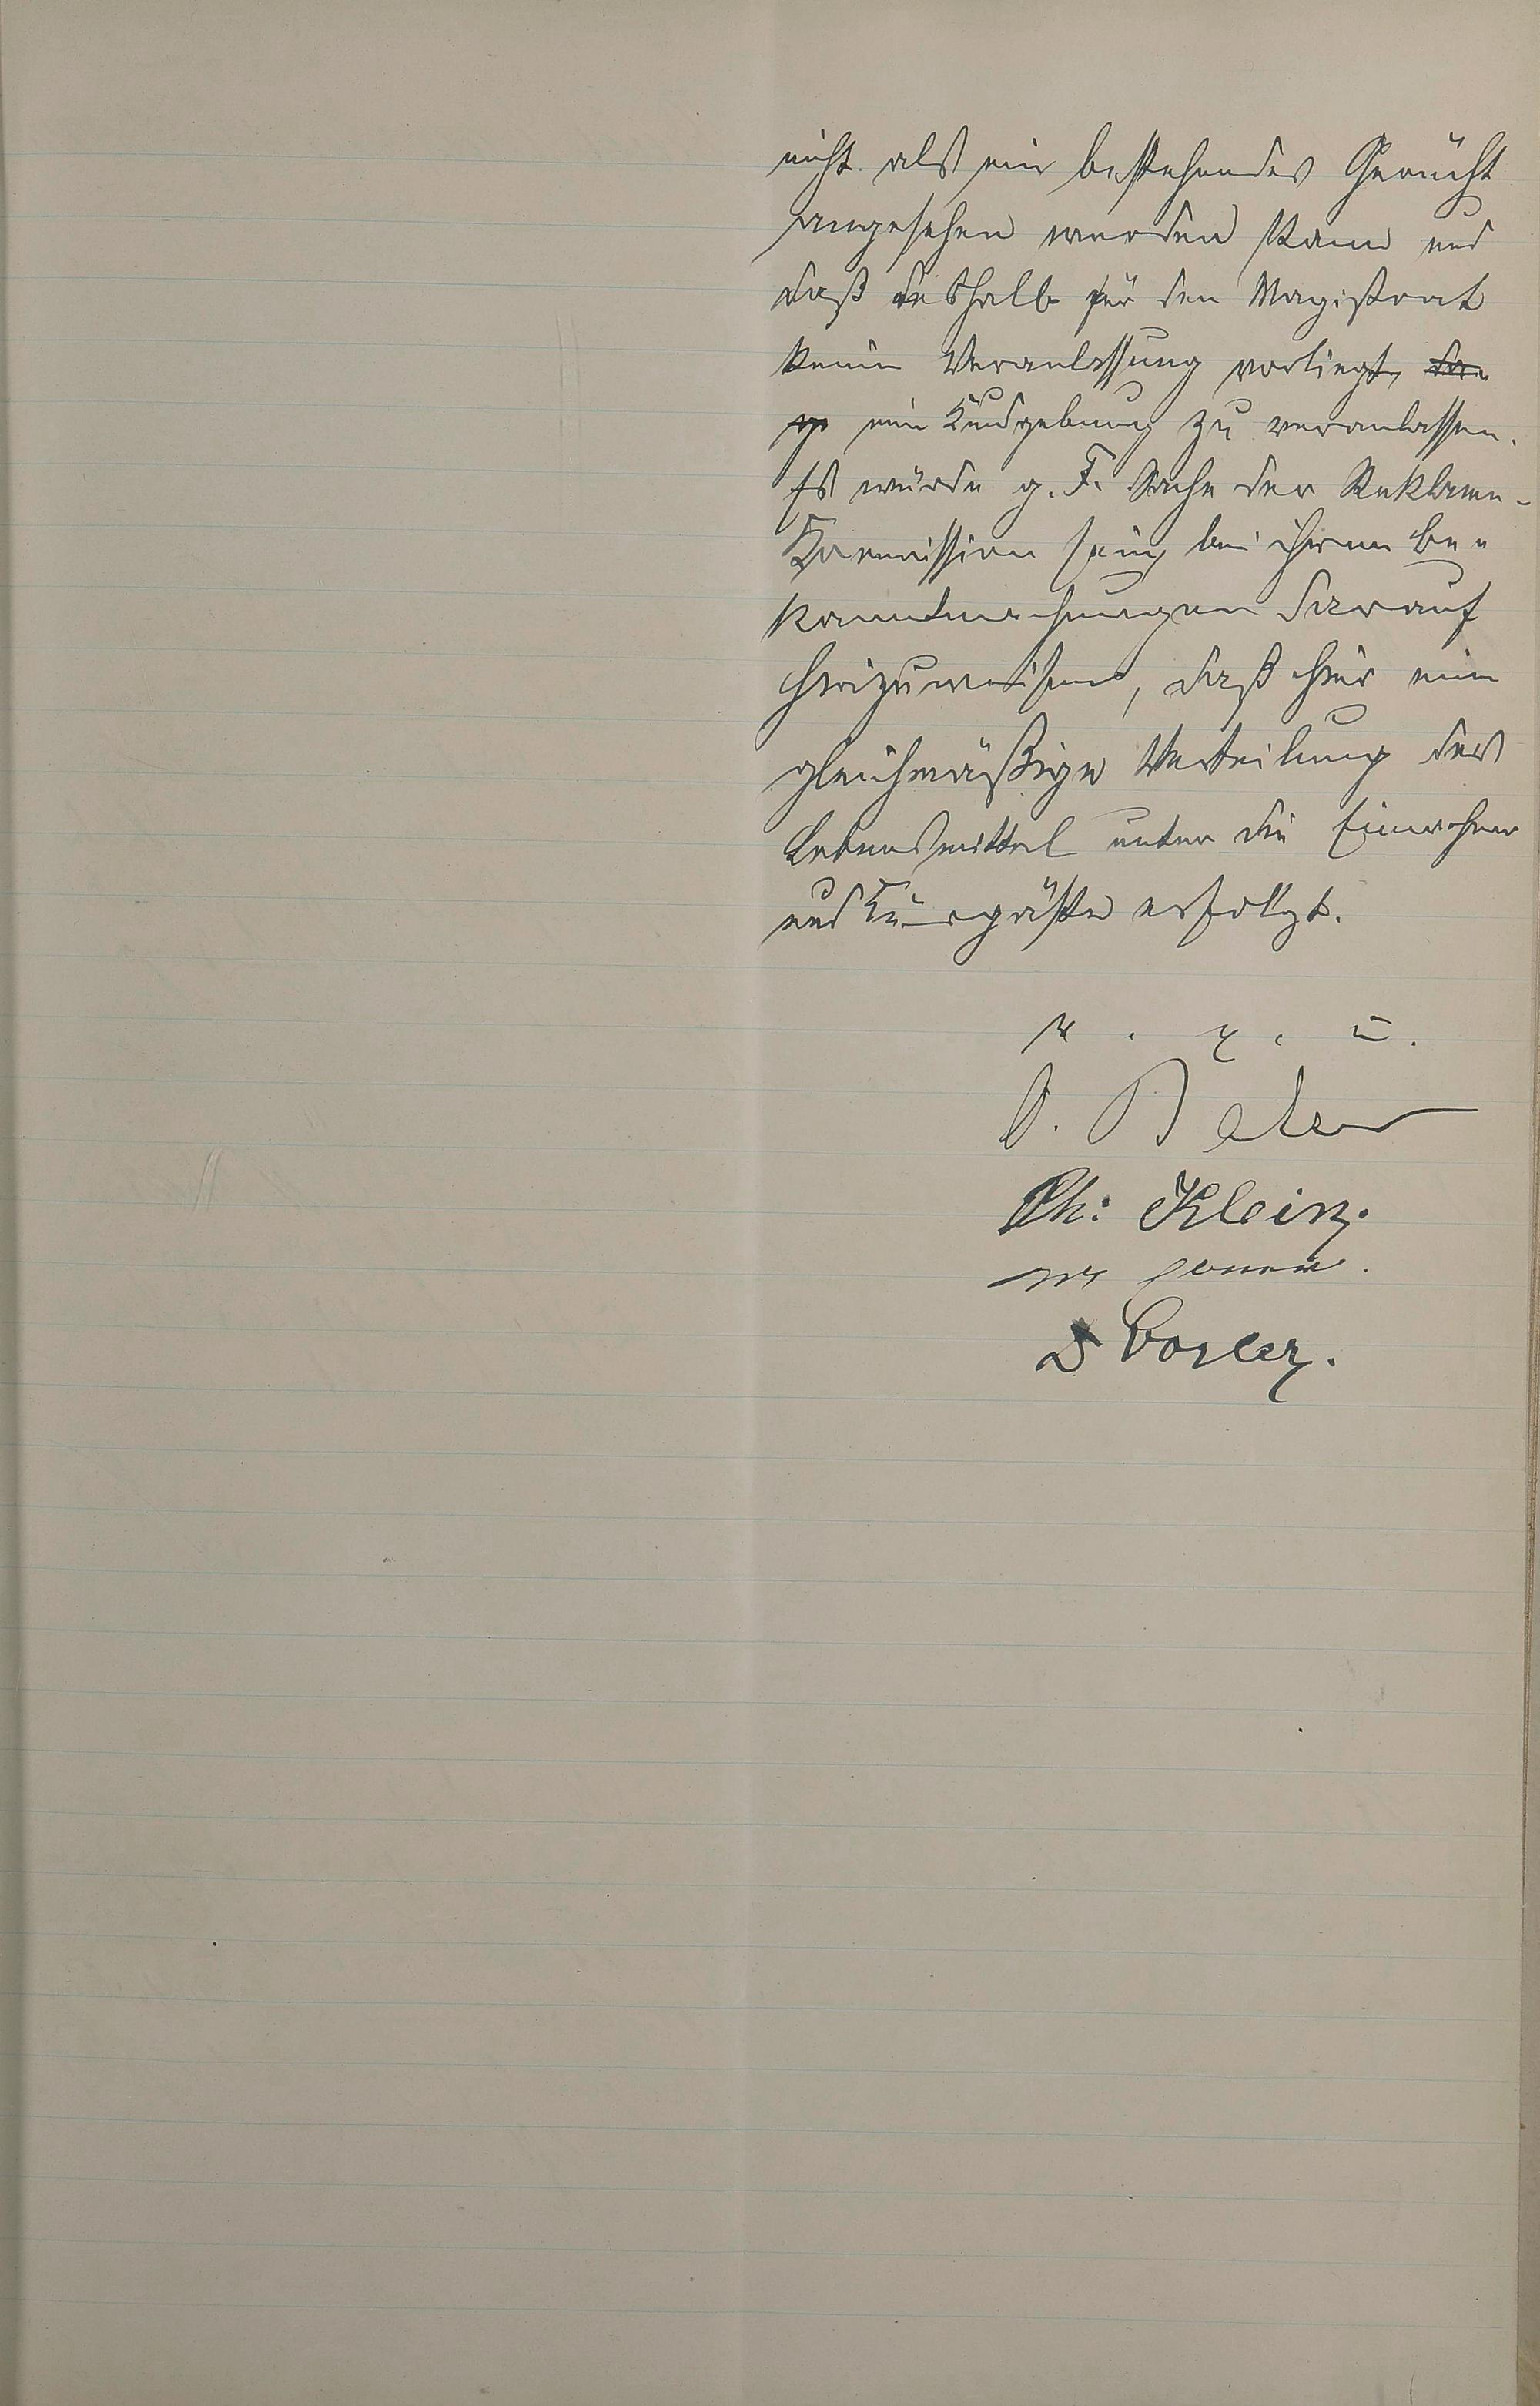 nicht als ein bestehendes Gerücht
angesehen werden kann und
daß deshalb für den Magistrat
keine Veranlassung vorliegt,
eine Kundgebung zu veranlassen.
Es würde g. F. Sache der Reklame-
Kommission sein, bei ihren Be-
kanntmachungen darauf
hinzuweisen, daß hier eine
gleichmäßige Verteilung der
Lebensmittel unter die Einwohner
und Kurgäste erfolgt.
v. g. u.
Ph: Klein.